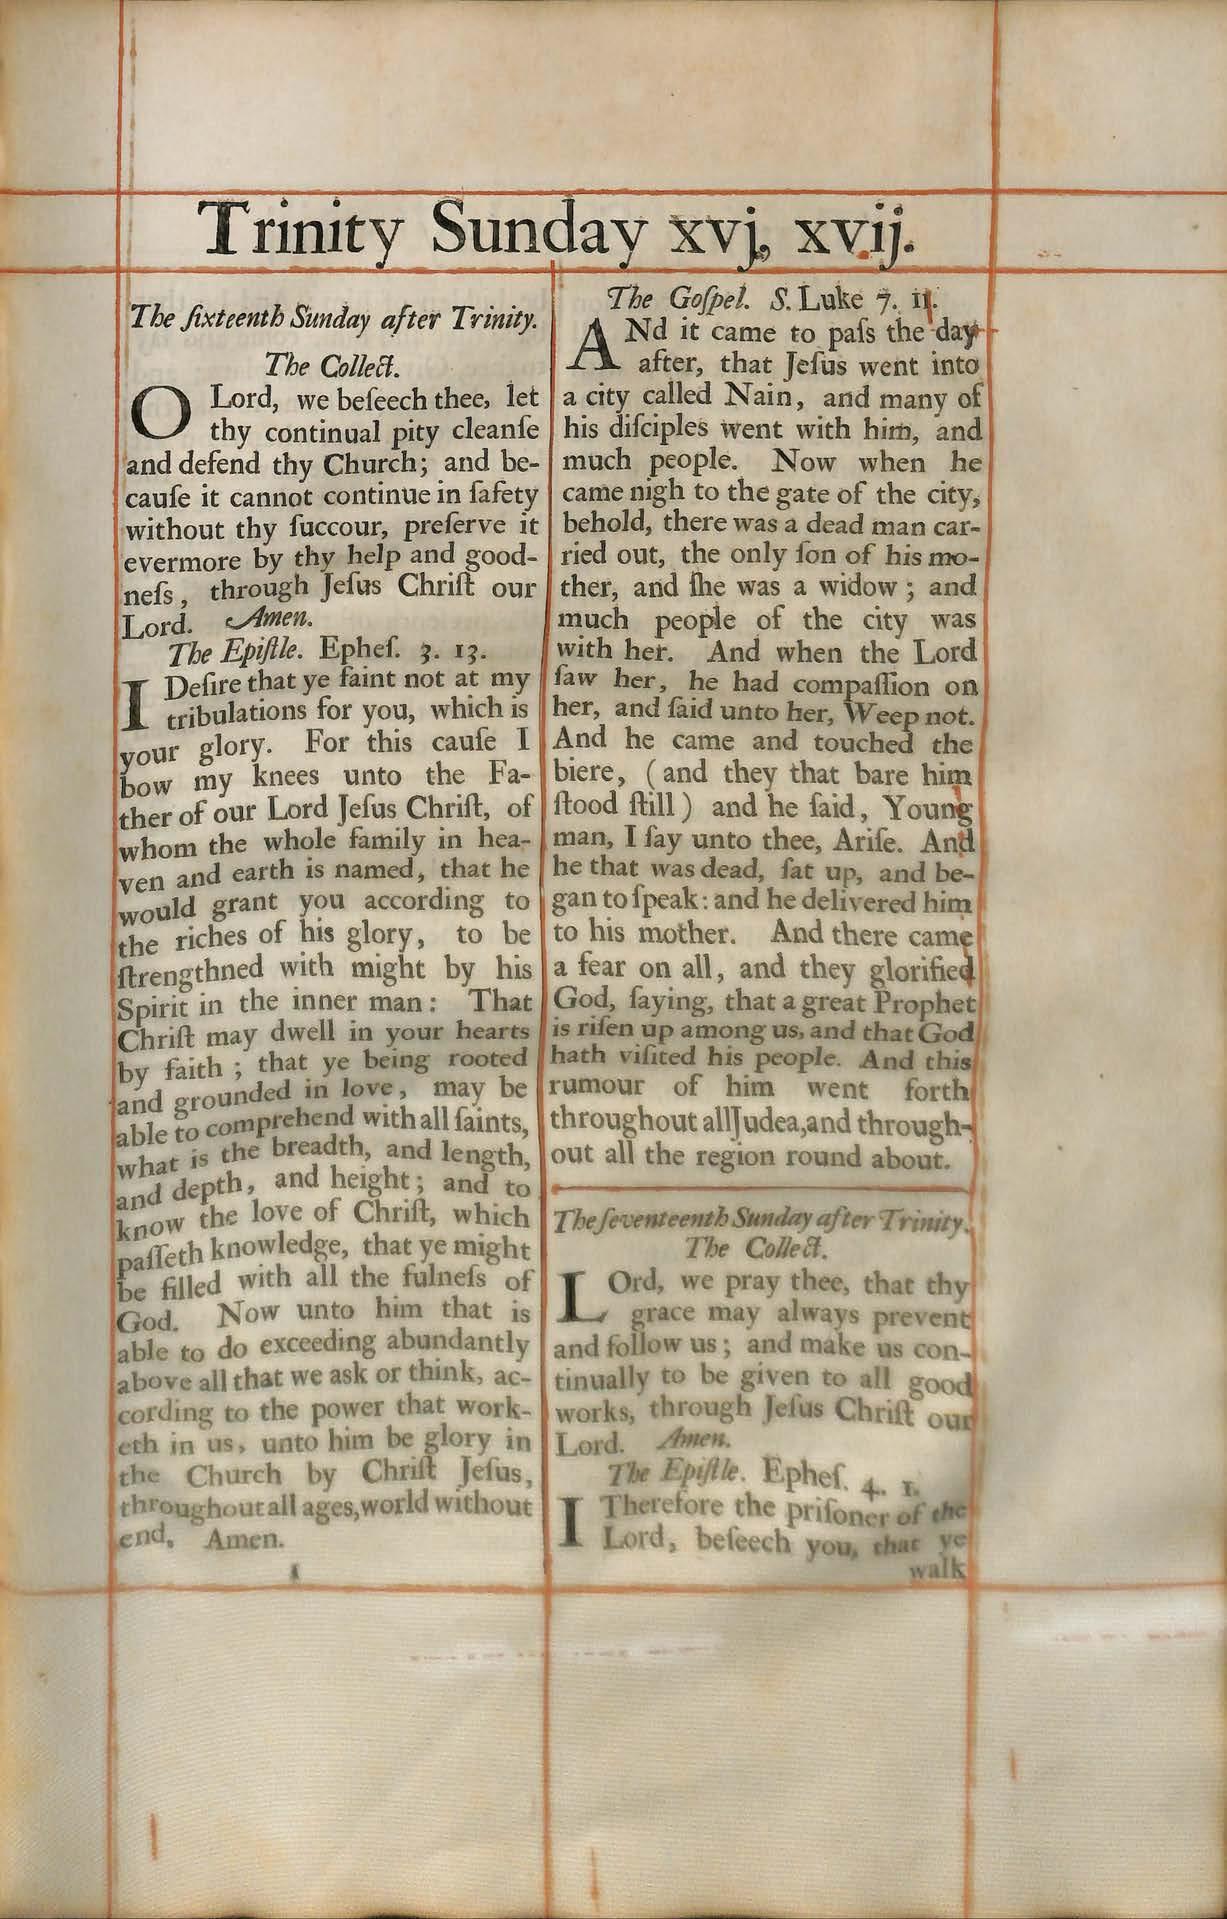 Trinity Sunday xvj, xvij.
The ſixteenth Sunday after Trinity.
The Collect.
O Lord, we beſeech thee, let
thy continual pity cleanſe
and defend thy Church; and be-
cauſe it cannot continue in ſafety
without thy ſuccour, preſerve it
evermore by thy help and good-
neſs, through Jeſus Chriſt our
Lord. Amen.
The Epiſtle. Epheſ. 3. 13.
I Deſire that ye faint not at my
tribulations for you, which is
your glory. For this cauſe I
bow my knees unto the Fa-
ther of our Lord Jeſus Chriſt, of
whom the whole family in hea-
ven and earth is named, that he
would grant you according to
the riches of his glory, to be
ſtrengthned with might by his
Spirit in the inner man: That
Chriſt may dwell in your hearts
by faith; that ye being rooted
and grounded in love, may be
able to comprehend with all ſaints,
what is the breadth, and length,
and depth, and height; and to
know the love of Chriſt, which
paſſeth knowledge, that ye might
be filled with all the fulneſs of
God. Now unto him that is
able to do exceeding abundantly
above all that we ask or think, ac-
cording to the power that work-
eth in us, unto him be glory in
the Church by Chriſt Jeſus,
throughout all ages, world without
end. Amen.
The Goſpel. S. Luke 7. 11.
ANd it came to paſs the day
after, that Jeſus went into
a city called Nain, and many of
his diſciples went with him, and
much people. Now when he
came nigh to the gate of the city,
behold, there was a dead man car-
ried out, the only ſon of his mo-
ther, and ſhe was a widow; and
much people of the city was
with her. And when the Lord
ſaw her, he had compaſſion on
her, and ſaid unto her, Weep not.
And he came and touched the
biere, (and they that bare him
ſtood ſtill) and he ſaid, Young
man, I ſay unto thee, Ariſe. And
he that was dead, ſat up, and be-
gan to ſpeak: and he delivered him
to his mother. And there came
a fear on all, and they glorified
God, ſaying, that a great Prophet
is riſen up among us, and that God
hath viſited his people. And this
rumour of him went forth
throughout all Judea, and through-
out all the region round about.
The ſeventeenth Sunday after Trinity.
The Collect.
LOrd, we pray thee, that thy
grace may always prevent
and follow us; and make us con-
tinually to be given to all good
works, through Jeſus Chriſt our
Lord. Amen.
The Epiſtle. Epheſ. 4. 1.
I Therefore the priſoner of the
Lord, beſeech you, that ye
walk